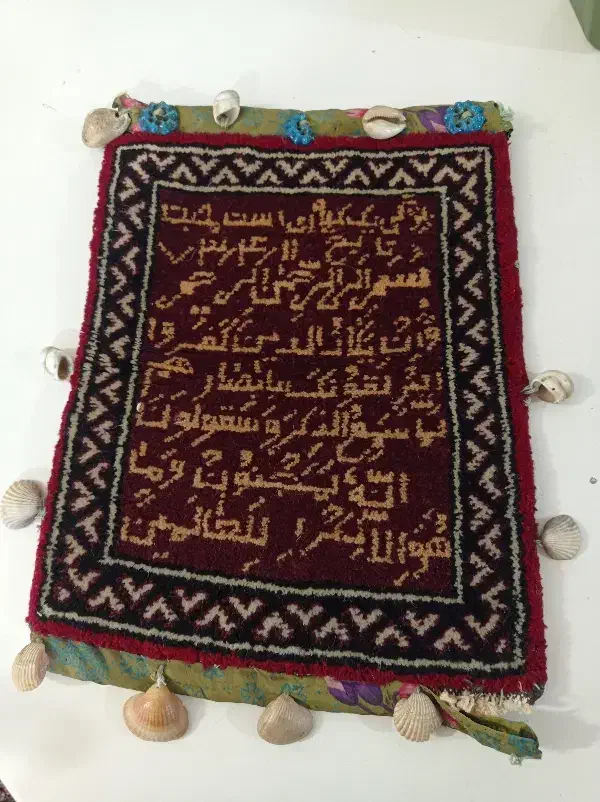 تاریخ
بسم الله الرحمن الرحیم
وان یکاد الذین کفروا
لیزلقونک بابصارهم
لما سمعو الذکر و یقولون
انه لمجنون وما
هو الا ذکر للعالمین